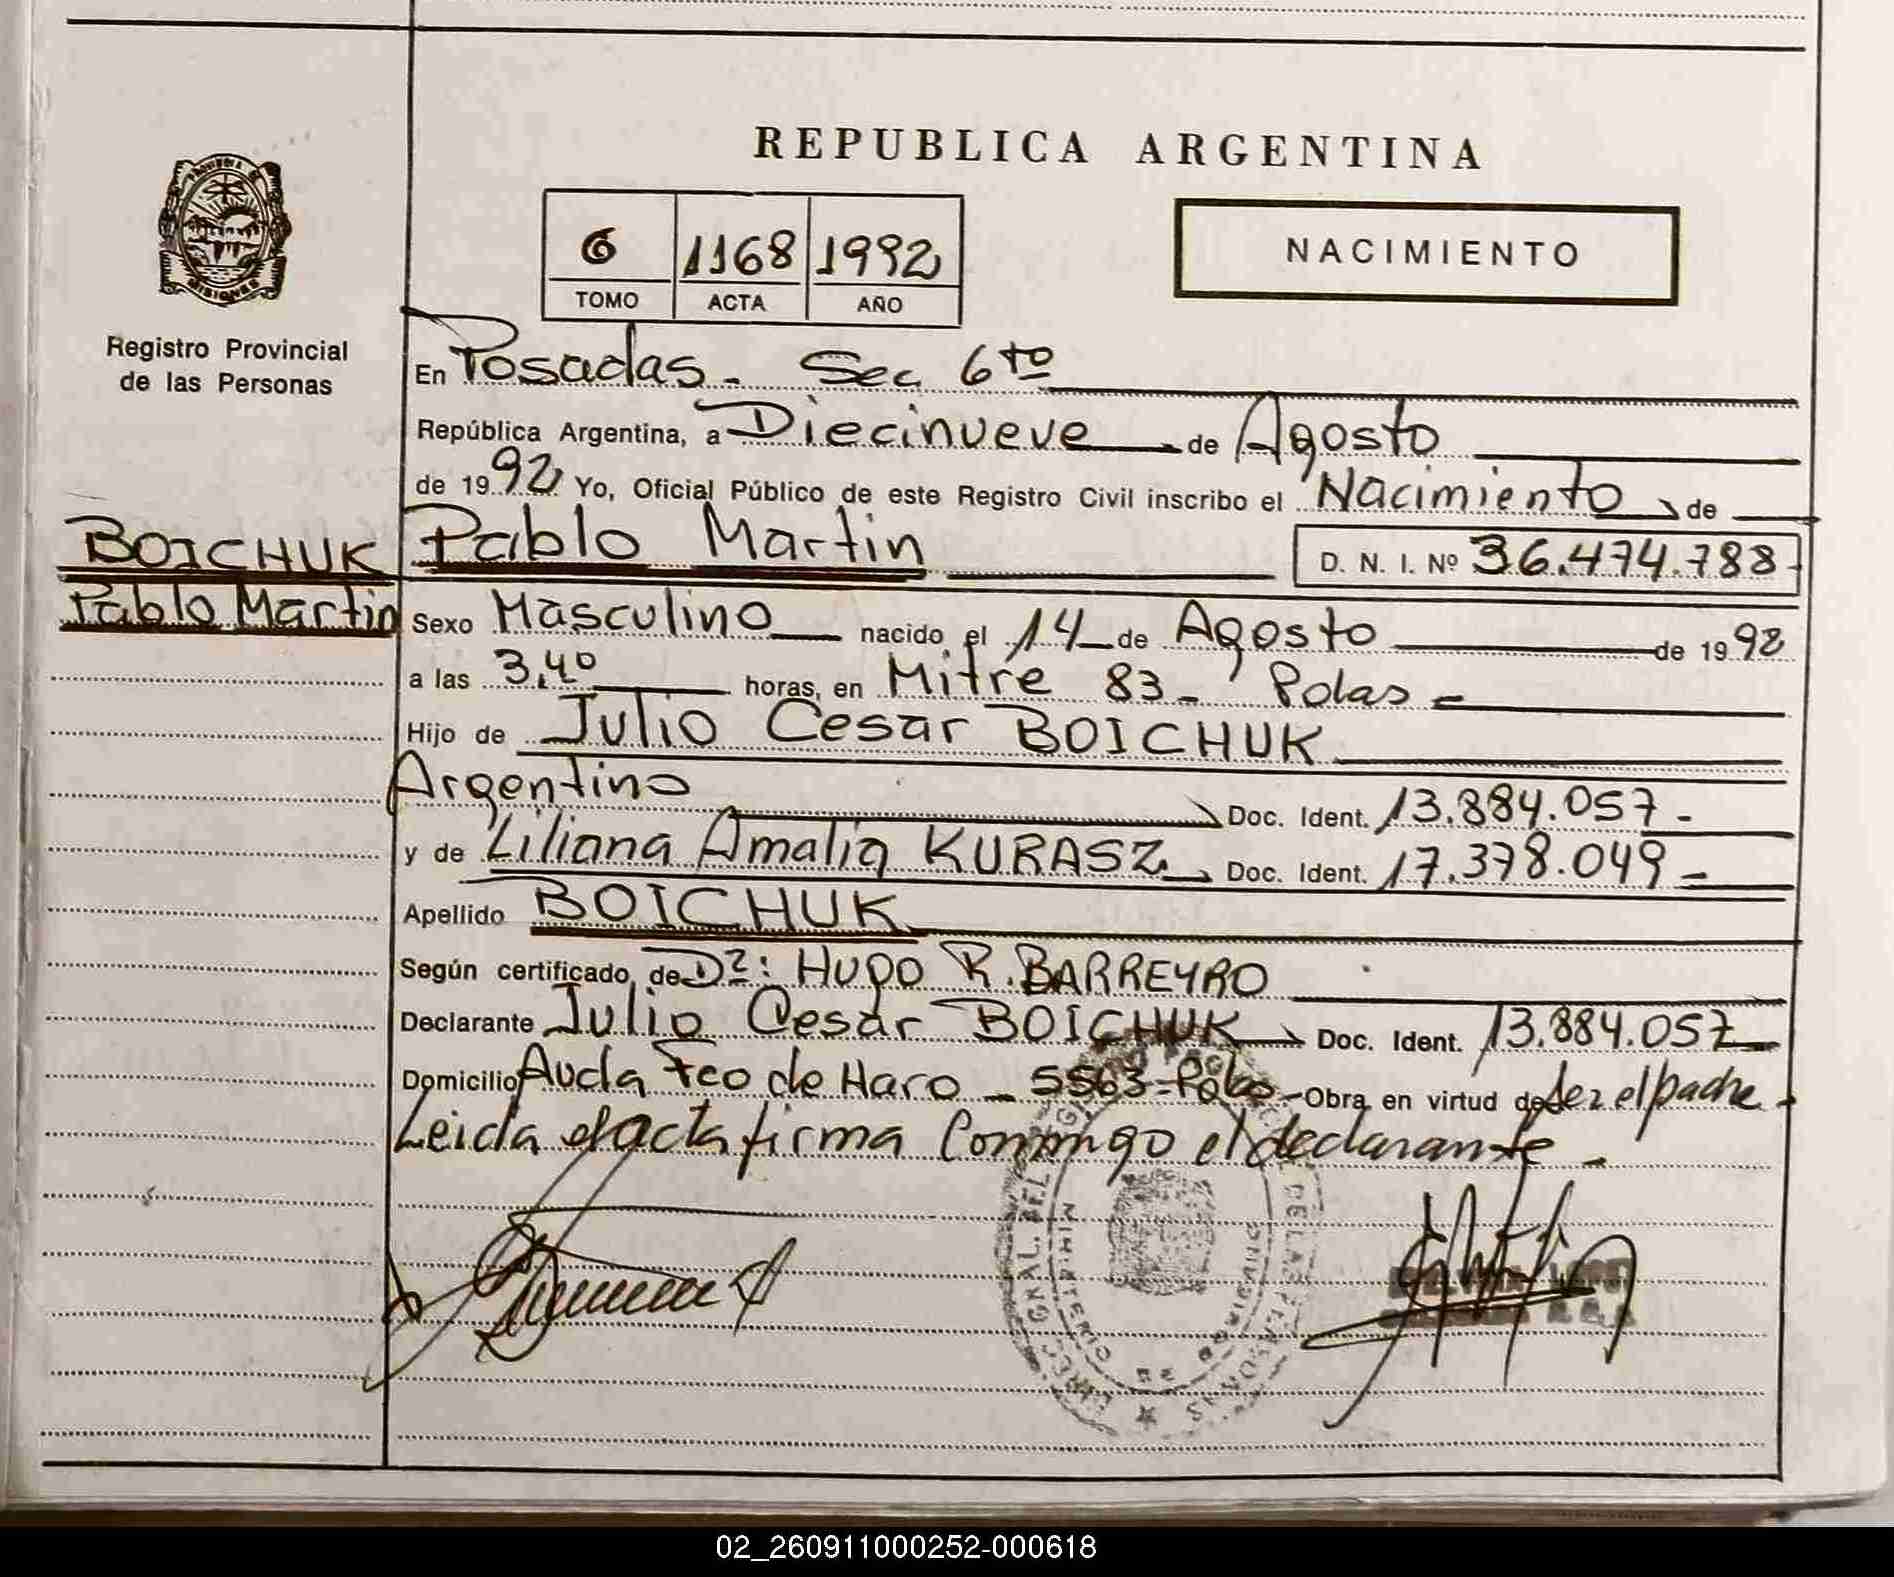 REPUBLICA ARGENTINA
6 1168 1992
TOMO ACTA AÑO
NACIMIENTO
Registro Provincial
de las Personas
BOICHUK
Pablo Martin
En Posadas - Sec 6to
República Argentina, a Diecinueve de Agosto
de 1992 Yo, Oficial Público de este Registro Civil inscribo el Nacimiento de
Pablo Martin D. N. I. Nº 36.474.788
Sexo Masculino nacido el 14 de Agosto de 1992
a las 3,40 horas, en Mitre 83 - Pdas -
Hijo de Julio Cesar BOICHUK
Argentino Doc. Ident. 13.884.057 -
y de Liliana Amalia KURASZ Doc. Ident. 17.378.049 -
Apellido BOICHUK
Según certificado de Dr: HUGO R. BARREYRO
Declarante Julio Cesar BOICHUK Doc. Ident. 13.884.057
Domicilio Avda Fco de Haro - 5563 - Pdas - Obra en virtud de ser el padre -
Leida el acta firma Conmigo el declarante -
MINISTERIO DE
DE LAS PERSONAS
02_260911000252-000618